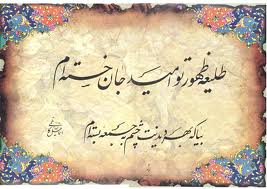 طلیعه ظهور تو امید جان خسته ام
بیا که بهر دیدنت چشم به جمعه بسته ام